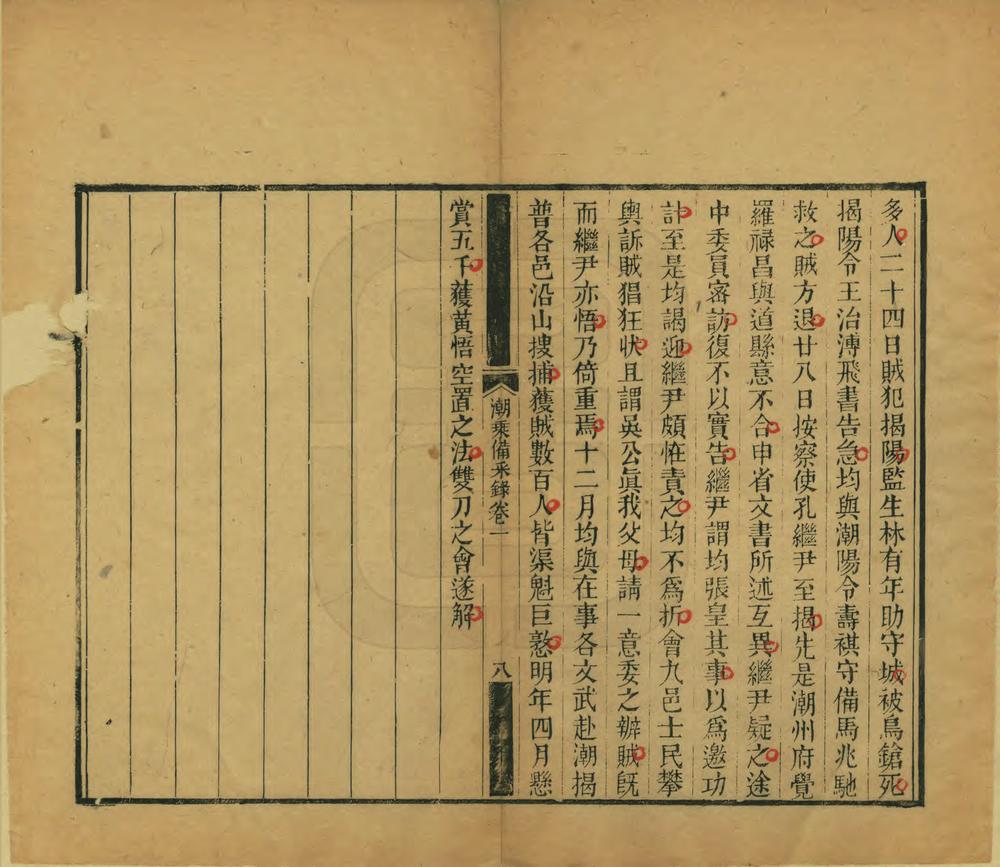 多人二十四日賊犯揭陽監生林有年助守城被鳥鎗死
揭陽令王治溥飛書告急均與潮陽令壽祺守備馬兆馳
救之賊方退廿八日按察使孔繼尹至揭先是潮州府覺
羅祿昌與道縣意不合申省文書所述互異繼尹疑之途
中委員密訪復不以實告繼尹謂均張皇其事以爲邀功
計至是均謁迎繼尹頗恠責之均不爲折會九邑士民攀
輿訴賊猖狂狀且謂吳公眞我父母請一意委之辦賊旣
而繼尹亦悟乃倚重焉十二月均與在事各文武赴潮揭
普各邑沿山搜捕獲賊數百人皆渠魁巨憝明年四月懸
潮乘備采錄卷一
八
賞五千獲黃悟空置之法雙刀之會遂解